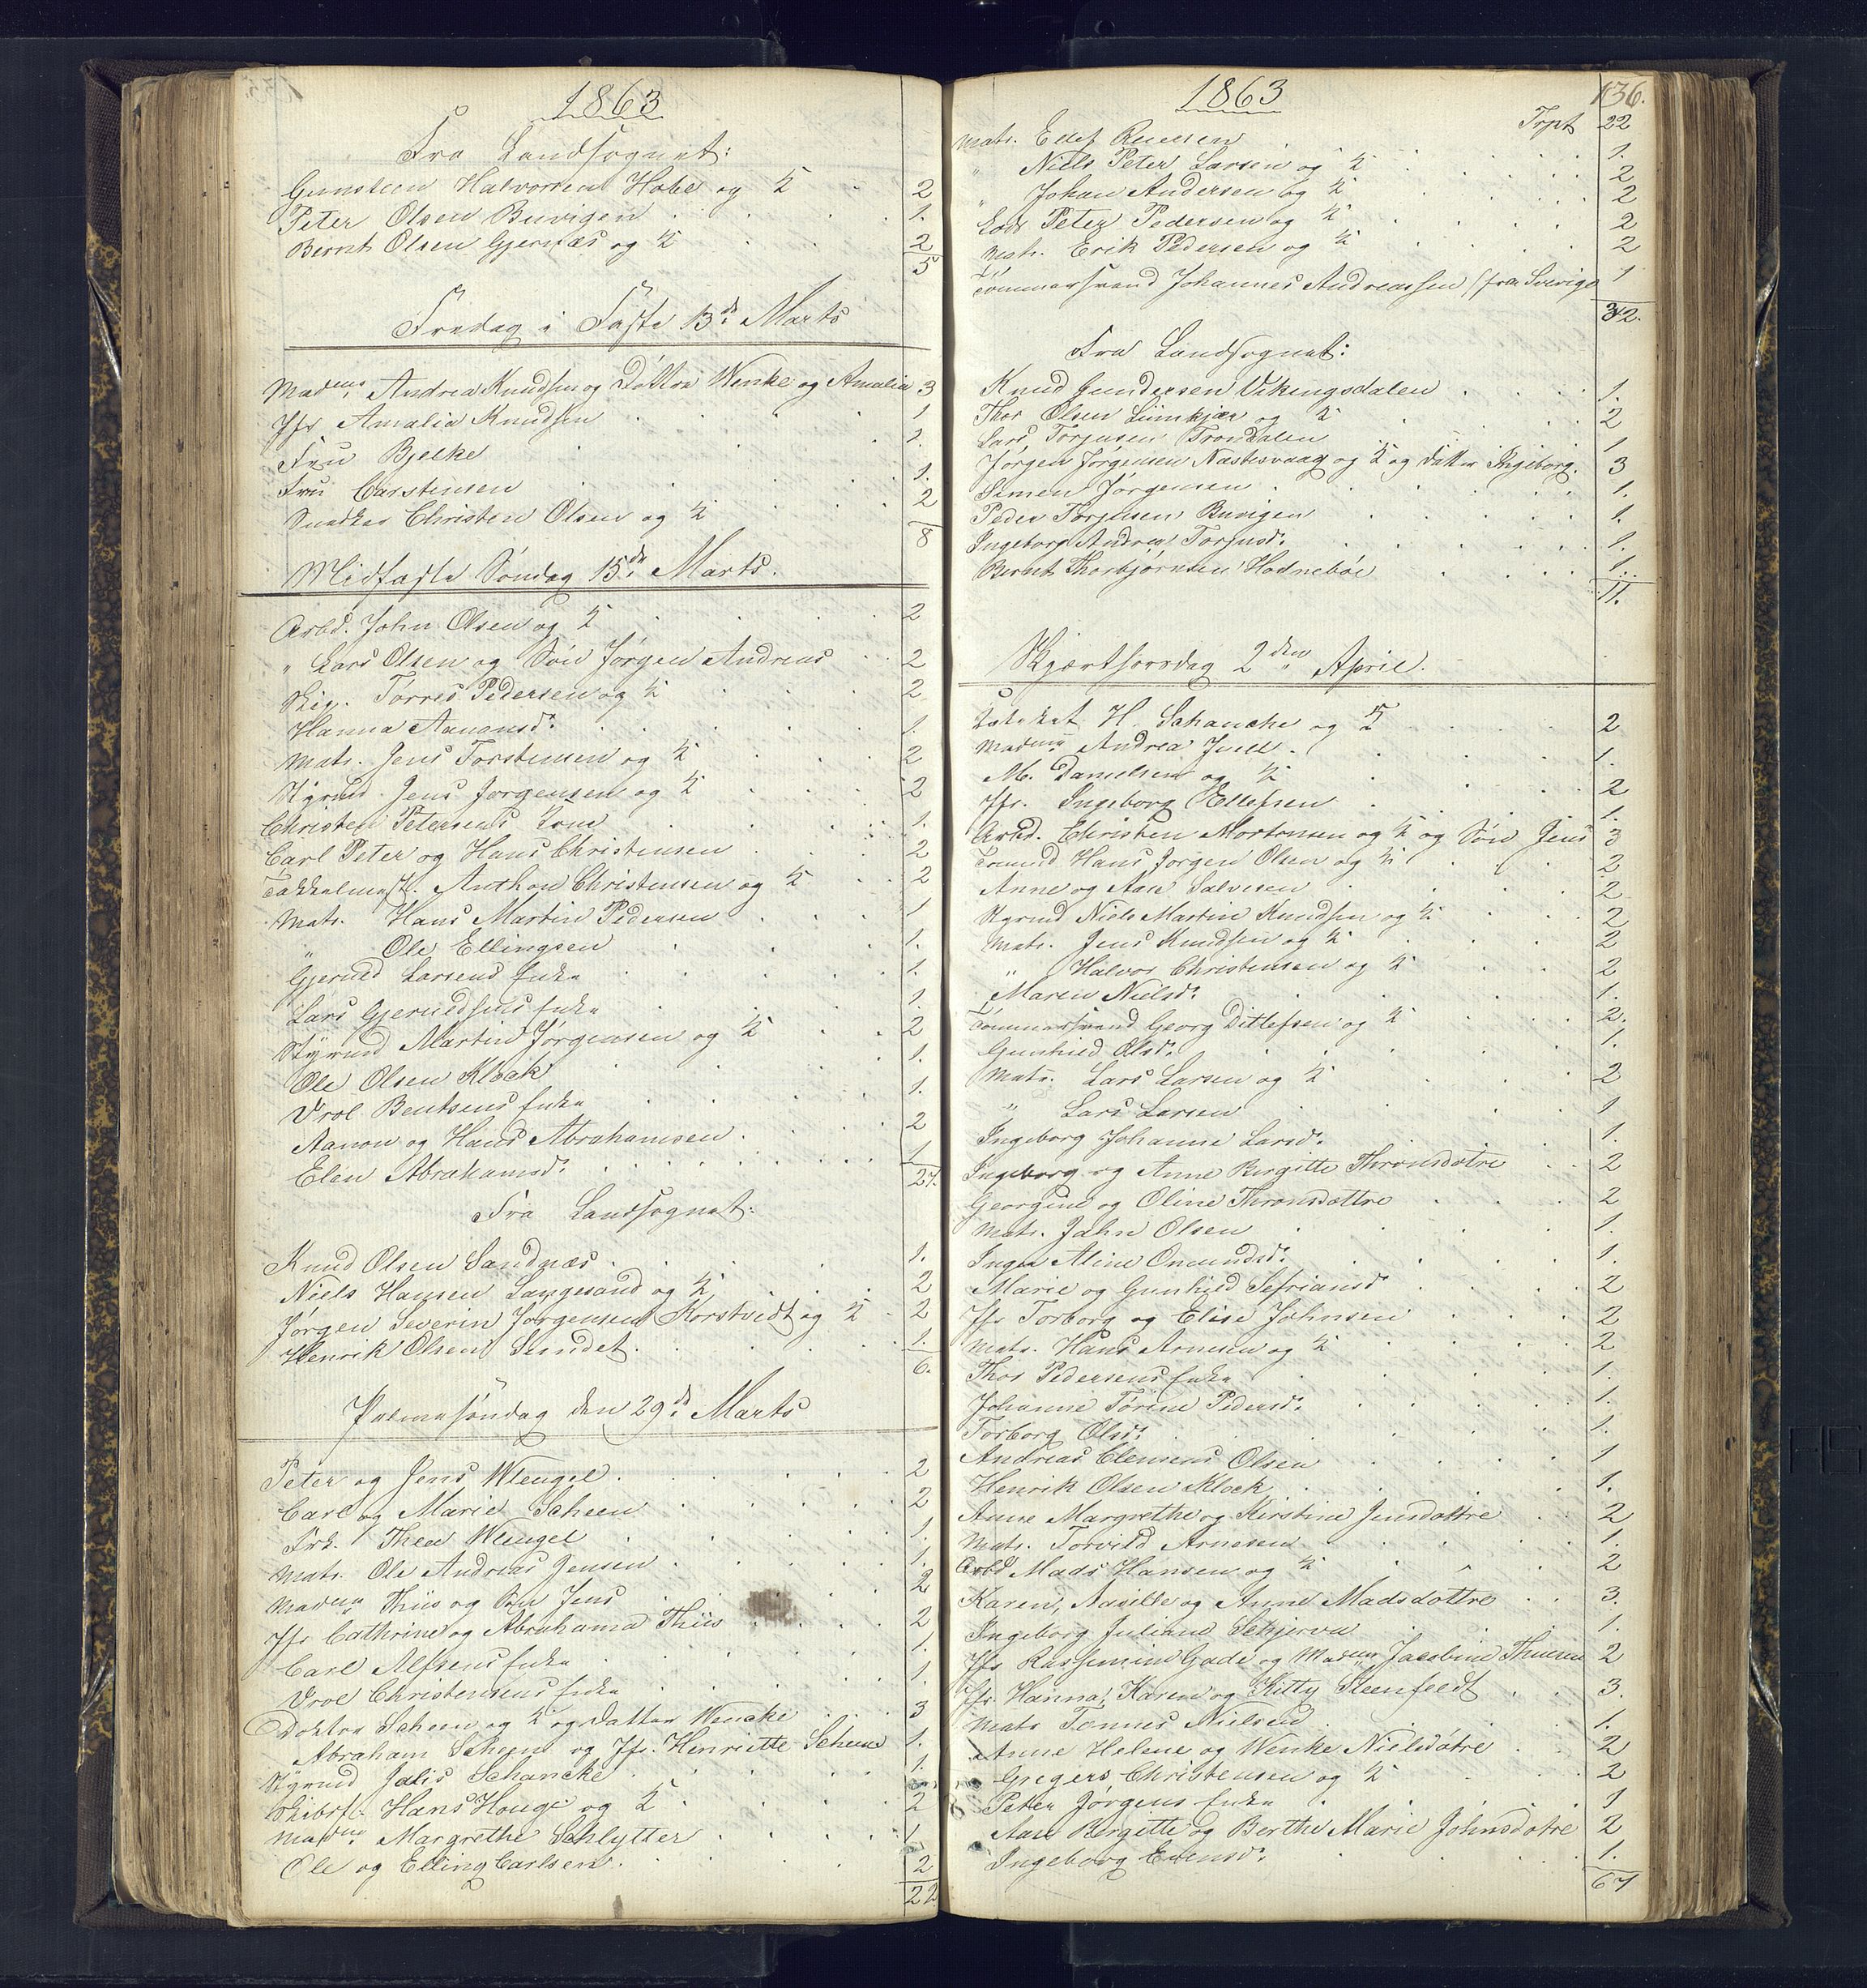 1863
Fra Landsognet:
Gunsteen Halvorsen Hobe og ½ 2
Peter Olsen Buvigen 1.
Bernt Olsen Gjernæs og ½ 2
5
Fredag i Faste 13de Marts
Madme Andrea Knudsen og Döttre Wenke og Amalia 3
Jfr Amalia Knudsen 1
Fru Bjelke 1.
Fru Carstensen 1.
Snedker Christen Olsen og ½ 2
8
Midfaste Söndag 15de Marts.
Arbd. John Olsen og ½ 2
" Lars Olsen og Sön Jörgen Andreas 2
Skip. Torres Pedersen og ½ 2
Hanna Aanonsd: 1.
Matr. Jens Torstensen og ½ 2
Styrmd. Jens Jörgensen og ½ 2
Christen Petersens Kone 1.
Carl Peter og Hans Christensen 2
Takkelmest. Anthon Christensen og ½ 2
Matr. Hans Martin Pedersen 1
" Ole Ellingsen 1.
Gjeruld Larsens Enke 1.
Lars Gjeruldsens Enke 1.
Styrmd Martin Jörgensen og ½ 2
Ole Olsen Klock 1.
Vrol Bentsens Enke 1.
Aanon og Hans Abrahamsen 2
Elen Abrahamsd: 1
27.
Fra Landsognet:
Knud Olsen Sandnæs 1.
Niels Hansen Langesand og ½ 2
Jörgen Severin Jörgensen Korstvedt og ½ 2
Henrik Olsen Sundet 1.
6.
Palmesöndag den 29de Marts
Peter og Jens Wleugel 2
Carl og Marie Scheen 2
Frk. Thea Wleugel 1.
Matr. Ole Andreas Jensen 1.
Madme Thiis og Sön Jens 2
Jfr Cathrine og Abrahama Thiis 2
Carl Alfsens Enke 1.
Vrol Christensens Enke 1.
Doktor Scheen og ½ og Datter Wencke 3
Abraham Scheen og Jfr. Henriette Scheen 1.
Styrmd Jalis Schancke 1.
Skibst. Hans Houge og ½ 2
Madme Margrethe Schlytter 1
Ole og Elling Carlsen 2
22
1863
136.
Trpt 22
Matr. Ellef Roelsen 1.
" Niels Peter Larsen og ½ 2
" Johan Andersen og ½ 2
Lods Peter Pedersen og ½ 2
Matr. Erik Pedersen og ½ 2
Tömmermand Johannes Andreassen (fra Sverige 1
32.
Fra Landsognet:
Knud Gundersen Vikingsdalen 1.
Thor Olsen Limkjær og ½ 2
Lars Torjusen Trondalen 1
Jörgen Jörgensen Næstesvaag og ½ og Datter Ingeborg. 3
Simen Jörgensen 1.
Peder Torjusen Buvigen 1.
Ingeborg Andrea Torjusd: 1.
Bernt Thorbjörnsen Hodneböe 1.
11.
Skjærthorsdag 2den April.
H. Schancke og ½ 2
Madme Andrea Juell 1.
M. Danielsen og ½ 2
Jfr. Ingeborg Ellefsen 1.
Arbd. Christen Mortensen og ½ og Sön Jens 3
Tömmd Hans Jörgen Olsen og ½ 2
Anne og Aase Salvesen 2
Styrmd Niels Martin Knudsen og ½ 2
Matr. Jens Knudsen og ½ 2
" Halvor Christensen og ½ 2
Maren Nielsd: 1.
Tömmermand Georg Ditlefsen og ½ 2.
Gunhild Olsd: 1.
Matr. Lars Larsen og ½ 2
" Lars Larsen 1
Ingeborg Johanne Larsd: 1.
Ingeborg og Anne Birgitte Thronsdötre 2
Georgine og Oline Thronsdöttre 2
Matr. John Olsen 1.
Inger Aline Omundsd: 1.
Marie og Gunhild Sefriansd 2
Jfr Torborg og Elise Johnsen 2
Matr. Hans Arnesen og ½ 2
Thor Pedersens Enke 1.
Johanne Törine Pedersd: 1.
Torborg Olsd: 1.
Andreas Clemens Olsen 1
Henrik Olsen Klock 1.
Anne Margrethe og Kirstine Jensdöttre 2
Matr. Torvild Arnesen 1.
Arbd Mads Hansen og ½ 2
Karen, Aasille og Anne Madsdöttre 3.
Ingeborg Juliane Schjerva 1.
Jfr Rasmine Gade og Madme Jacobine Thuesen 2
Jfr. Hanna, Karen og Kitty Steenfeldt 3.
Matr Tönnes Nielsen 1.
Anne Helene og Wenke Nielsdötre 2
Gregers Christensen og ½ 2
Peter Jörgens Enke 1
Aase Birgitte og Berthe Marie Johnsdötre 2
Ingeborg Evensd: 1.
67